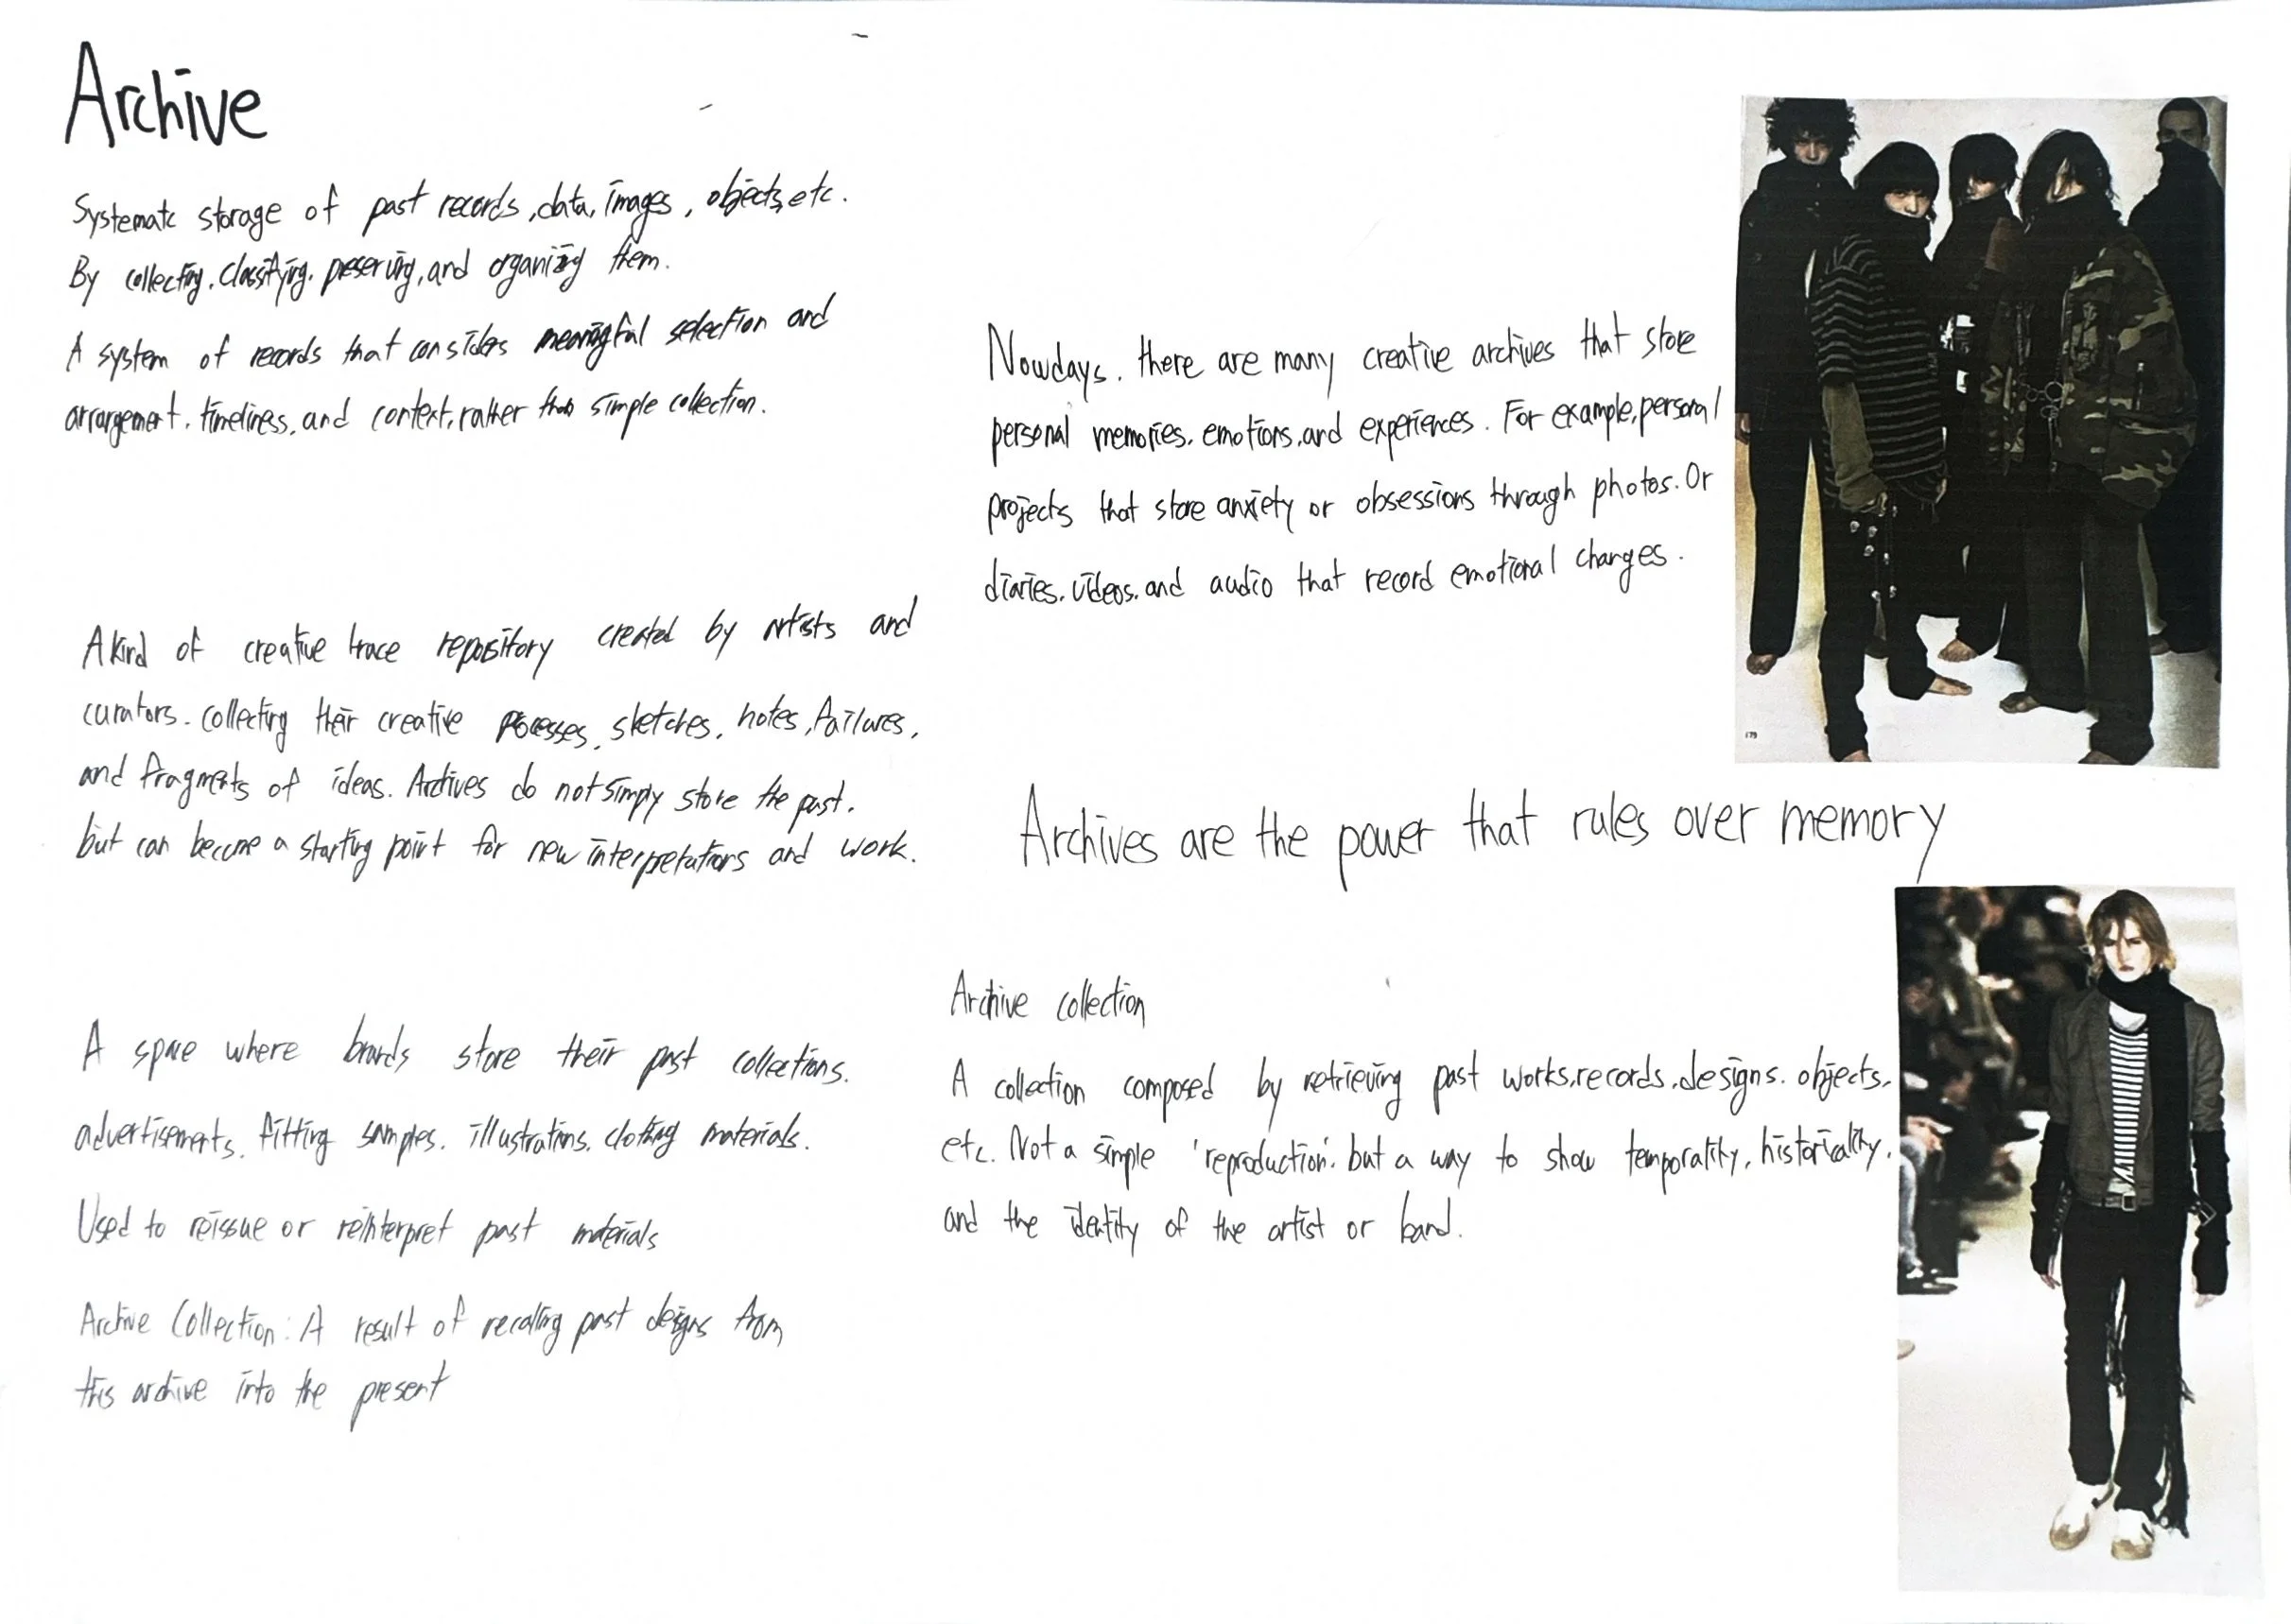 Archive
Systematc storage of past records, data, images, objects, etc.
By collecting, classifying, preserving, and organizing them.
A system of records that considers meaningful selection and
arrangement, timeliness, and context, rather than simple collection.
A kind of creative trace repository created by artists and
curators. collecting their creative processes, sketches, notes, failures,
and fragments of ideas. Archives do not simply store the past.
but can become a starting point for new interpretations and work.
A space where brands store their past collections.
advertisements, fitting samples, illustrations, clothing materials.
Used to reissue or reinterpret past materials
Archive Collection: A result of recalling past designs from
this archive into the present
Nowdays, there are many creative archives that store
personal memories, emotions, and experiences. For example, personal
projects that store anxiety or obsessions through photos. Or
diaries, videos, and audio that record emotional changes.
179
Archives are the power that rules over memory
Archive collection
A collection composed by retrieving past works, records, designs, objects,
etc. Not a simple 'reproduction', but a way to show temporality, historicality,
and the identity of the artist or band.